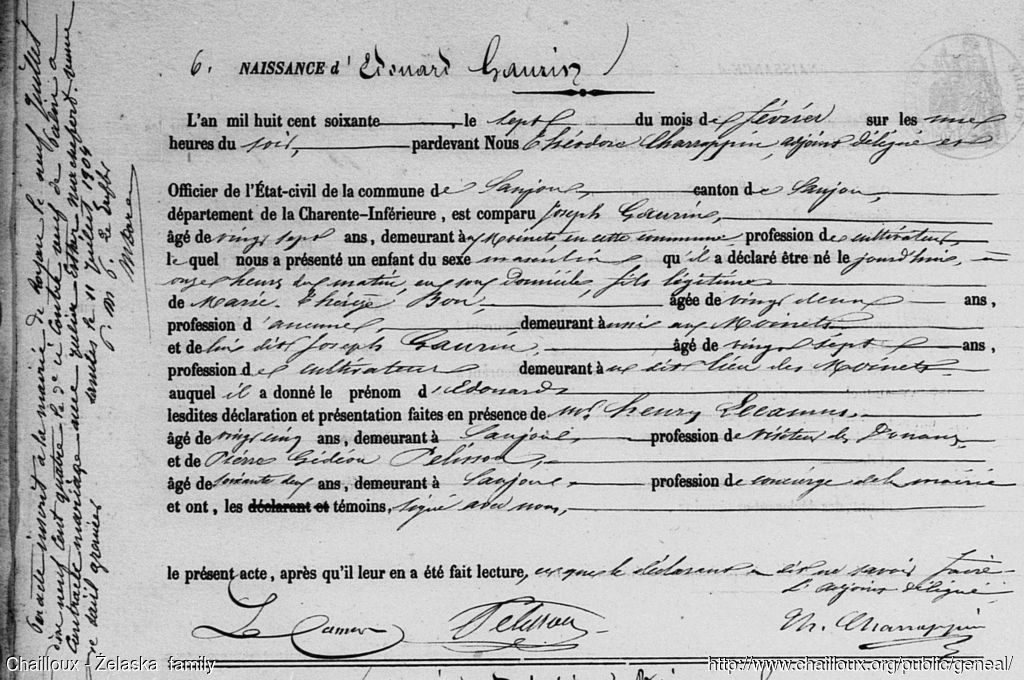 6. NAISSANCE d' Edouard Gaurin
L'an mil huit cent soixante, le sept du mois de février sur les une
heures du soir, pardevant Nous Théodore Charroppin, adjoint délégué et
Officier de l'État-civil de la commune de Saujon, canton de Saujon,
département de la Charente-Inférieure, est comparu Joseph Gaurin,
âgé de vingt sept ans, demeurant à Moinets en cette commune, profession de cultivateur,
le quel nous a présenté un enfant du sexe masculin qu'il a déclaré être né le jourd'hui, à
onze heures du matin, en son domicile, fils légitime
de Marie Thérèse Bon, âgée de vingt deux ans,
profession d'aucune, demeurant à aux Moinets
et de lui dit Joseph Gaurin, âgé de vingt sept ans,
profession de cultivateur demeurant à au dit lieu des Moinets
auquel il a donné le prénom d'Edouard
lesdites déclaration et présentation faites en présence de Mrs henry Lecamus
âgé de vingt cinq ans, demeurant à Saujon profession de Douanes
et de Pierre Gédéon Pelisson,
âgé de soixante deux ans, demeurant à Saujon profession de concierge de la mairie
et ont, les déclarant et témoins, signé avec nous,
le présent acte, après qu'il leur en a été fait lecture, et que le déclarant a dit ne savoir faire
L'adjoint délégué
Le Camus Pelisson Th. Charroppin
acte inscrit à la mairie de royan le neuf Juillet
mil neuf cent quatre le dé ci contre
Contracté mariage avec
Saintes le 11 Juillet 1904
Le Greffier
Chailloux - Żelaska family
http://www.chailloux.org/public/geneal/